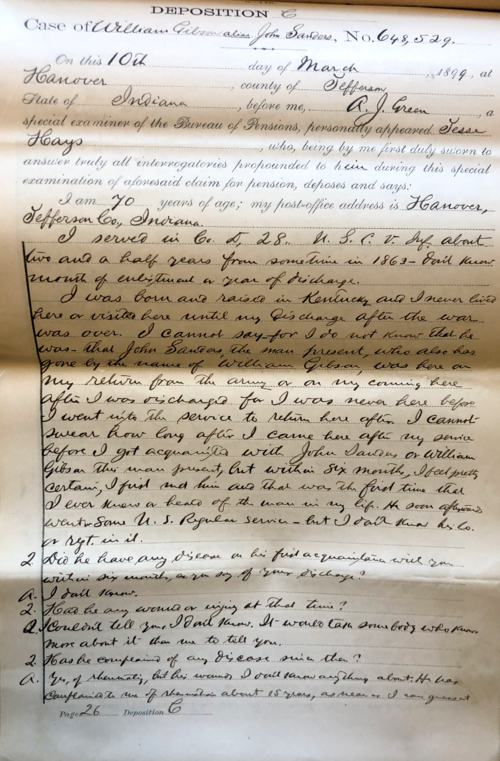 DEPOSITION C
Case of William Gibson alias John Sanders, No. 648,529.
On this 10th day of March, 1899, at
Hanover, county of Jefferson
State of Indiana, before me, A. J. Green, a
special examiner of the Bureau of Pensions, personally appeared Jesse
Hays, who, being by me first duly sworn to
answer truly all interrogatories propounded to him during this special
examination of aforesaid claim for pension, deposes and says:
I am 70 years of age; my post-office address is Hanover,
Jefferson Co., Indiana
I served in Co. D, 28. U.S.C.V. Inf. about
two and a half years from sometime in 1863 – don't know
month of enlistment or year of discharge.
I was born and raised in Kentucky and I never lived
here or visited here until my discharge after the war
was over. I cannot say – for I do not know that he
was – that John Sanders, the man present, who also has
gone by the name of William Gibson, was here on
my return from the army or on my coming here
after I was discharged for I was never here before
I went into the service to return here after. I cannot
swear how long after I came here after my service
before I got acquainted with John Sanders or William
Gibson this man present, but within six months, I feel pretty
certain, I first met him and that was the first time that
I ever knew or heard of the man in my life. He soon afterward
went Some U.S. Regular service – but I don't know his Co.
or regt. in it.
Q. Did he have any disease on his first acquaintance with you
within six months, as you say of your discharge?
A. I don't know.
Q. Had he any wound or injury at that time?
A. I couldn't tell you, I don't know. It would take somebody who knows
more about it than me to tell you.
Q. Has he complained of any disease since then?
A. Yes, of rheumatism, but his wounds I don't know anything about. He has
complained to me of rheumatism about 15 years, as near as I can guess at
Page 26 Deposition C